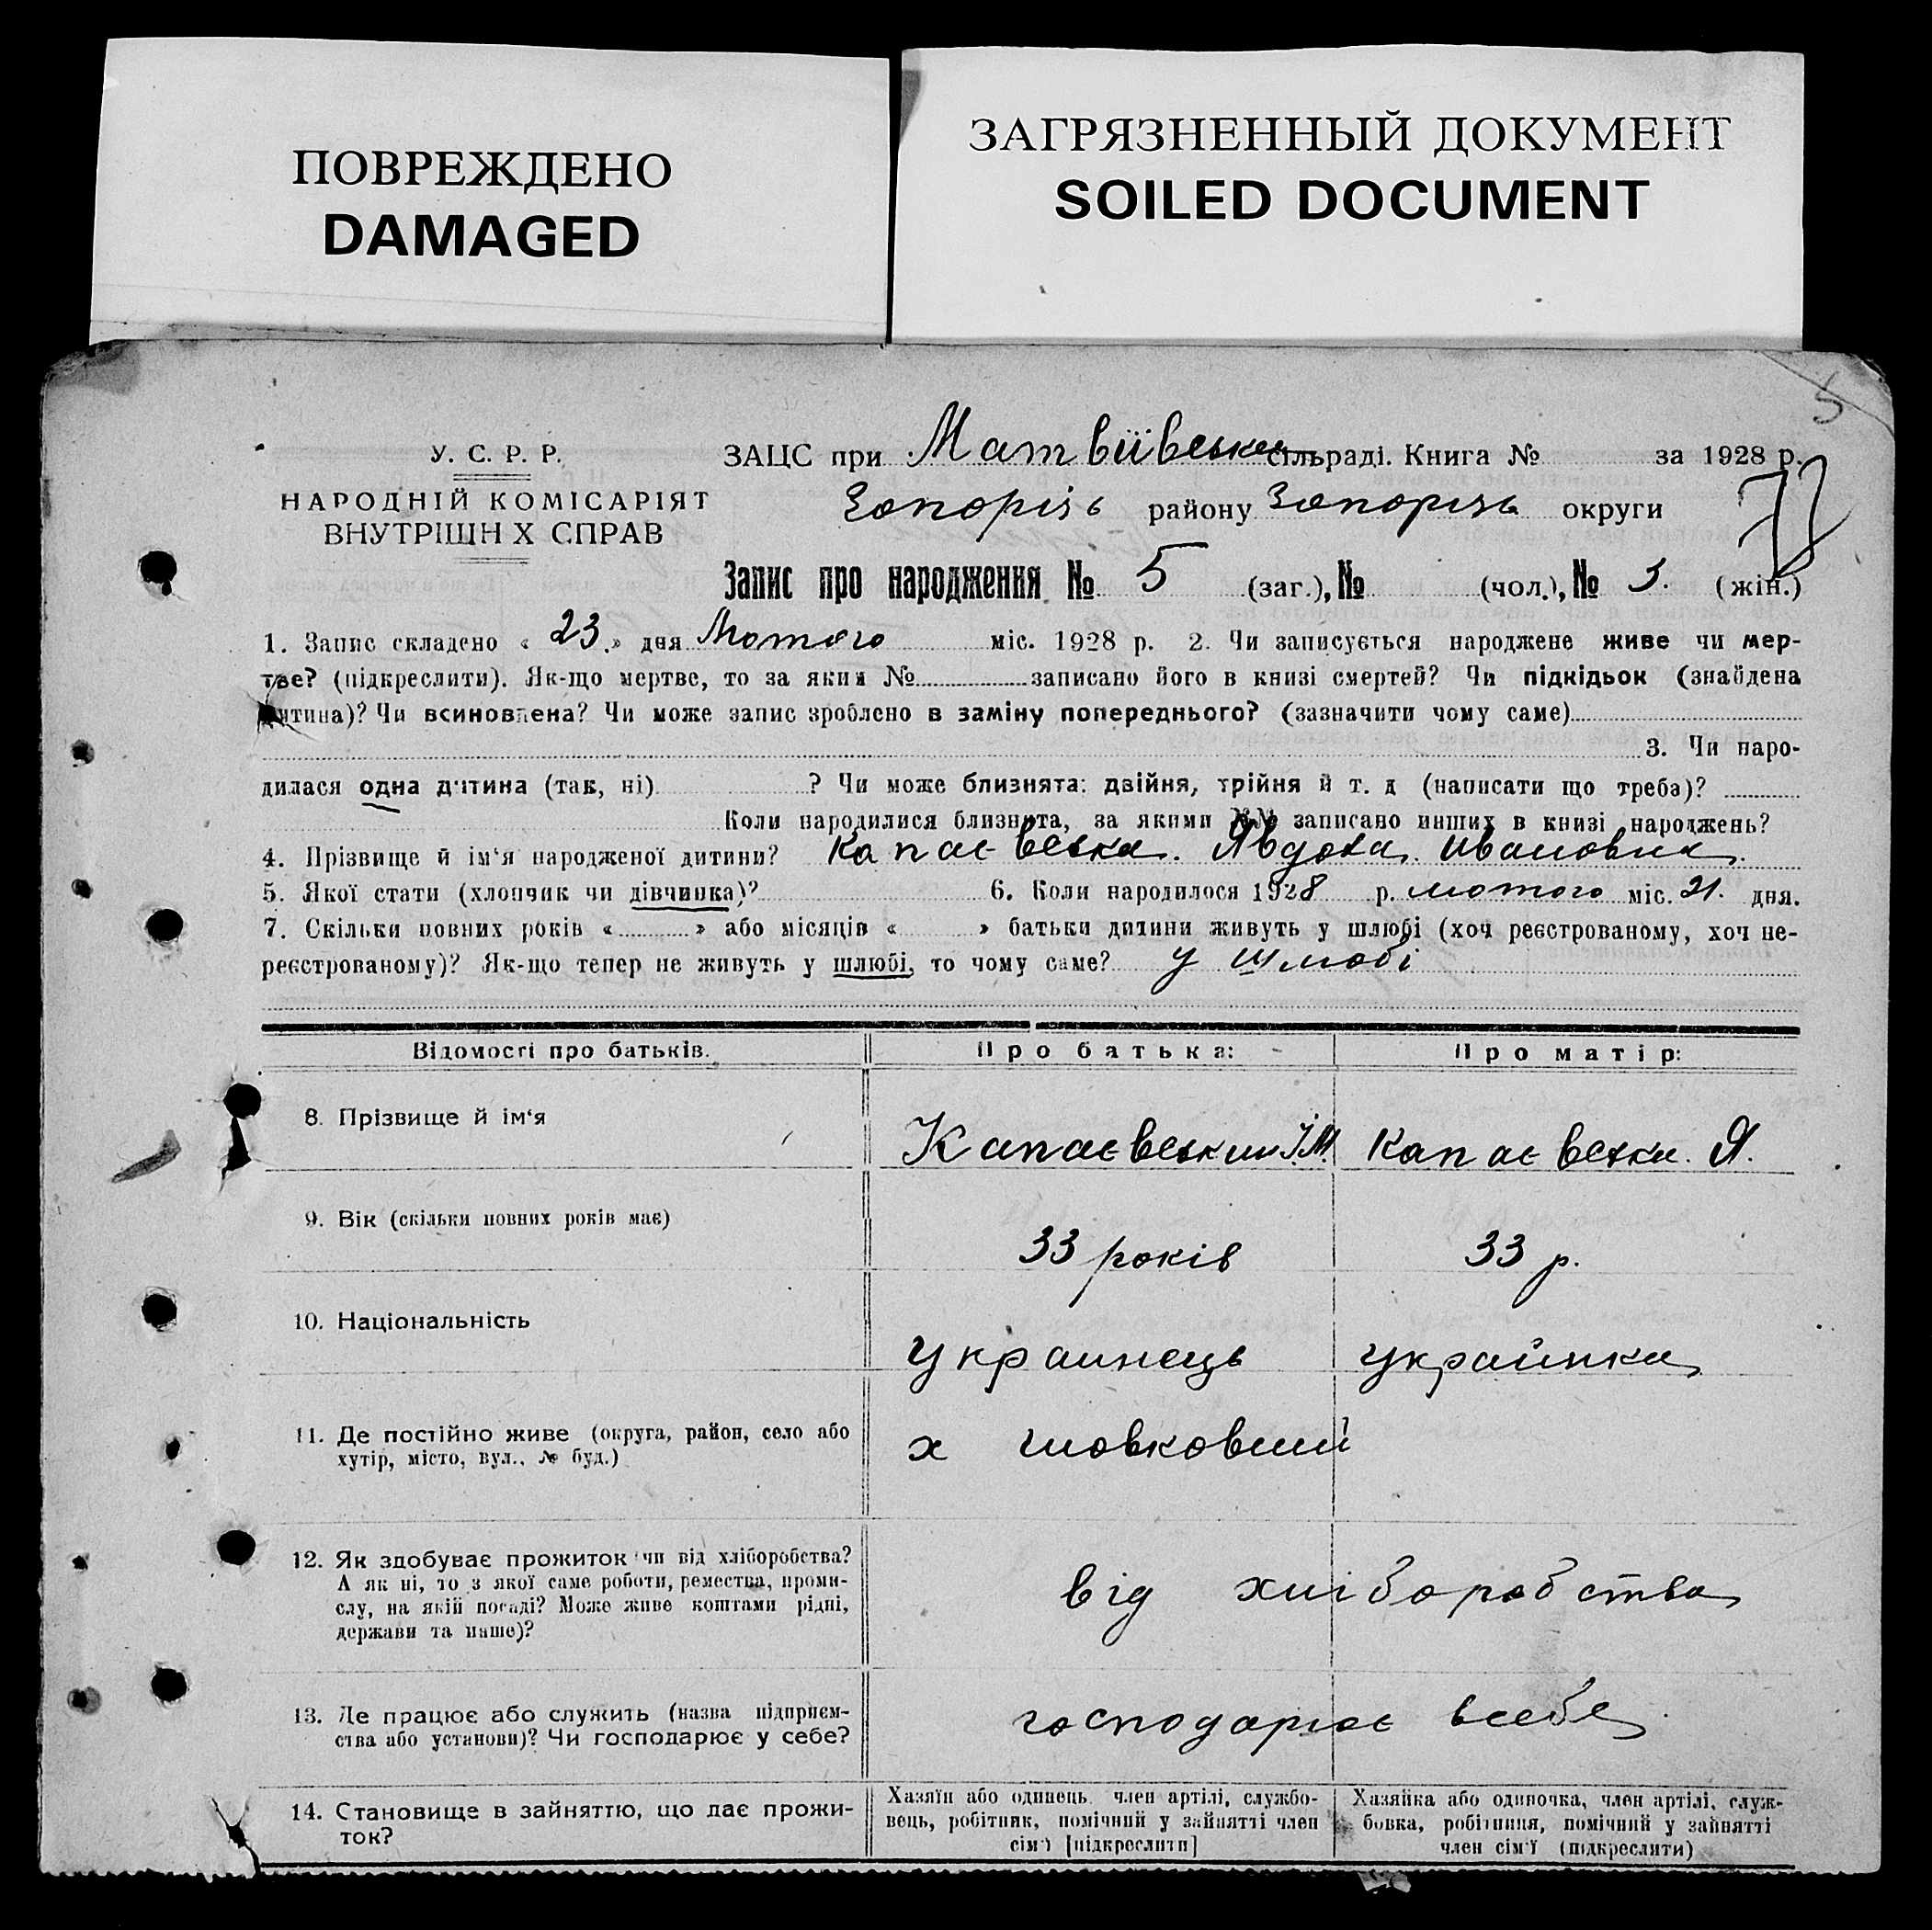 ПОВРЕЖДЕНО
DAMAGED
ЗАГРЯЗНЕННЫЙ ДОКУМЕНТ
SOILED DOCUMENT
5
У. С. Р. Р.
НАРОДНІЙ КОМІСАРІЯТ
ВНУТРІШН Х СПРАВ
ЗАЦС при Матвіївська сільраді. Книга № за 1928 р.
Запорізь району Запорізь округи
Запис про народження № 5 (заг.), № (чол.), № 3. (жін.)
1. Запис складено « 23 » дня Лютого міс. 1928 р. 2. Чи записується народжене живе чи мер-
тве? (підкреслити). Як-що мертве, то за яким № записано його в книзі смертей? Чи підкідьок (знайдена
дитина)? Чи всиновлена? Чи може запис зроблено в заміну попереднього? (зазначити чому саме)
3. Чи наро-
дилася одна дитина (так, ні) ? Чи може близнята: двійня, трійня й т. д (написати що треба)?
Коли народилися близнята, за якими №№ записано инших в книзі народжень?
4. Прізвище й ім'я народженої дитини? Капаєвська. Явдоха. Ивановна.
5. Якої стати (хлопчик чи дівчинка)? 6. Коли народилося 1928 р. лютого міс. 21. дня.
7. Скільки повних років « » або місяців « » батьки дитини живуть у шлюбі (хоч реєстрованому, хоч не-
реєстрованому)? Як-що тепер не живуть у шлюбі, то чому саме? у шлюбі
Відомості про батьків. Про батька: Про матір:
8. Прізвище й ім'я Капаєвський І.М. Капаєвська. Я.
9. Вік (скільки повних років має) 33 років 33 р.
10. Національність Украинець Українка
11. Де постійно живе (округа, район, село або
хутір, місто, вул., № буд.) х шовковий
12. Як здобуває прожиток чи від хліборобства?
А як ні, то з якої саме роботи, ремества, проми-
слу, на якій посаді? Може живе коштами рідні,
держави та инше)? від хліборобства
13. Де працює або служить (назва підприєм-
ства або установи)? Чи господарює у себе? господарює всебе
14. Становище в зайняттю, що дає прожи-
ток?
Хазяїн або одинець, член артілі, службо-
вець, робітник, помічний у зайнятті член
сім'ї [підкреслити]
Хазяйка або одиночка, член артілі, служ-
бовка, робітниця, помічний у зайнятті
член сім'ї (підкреслити)